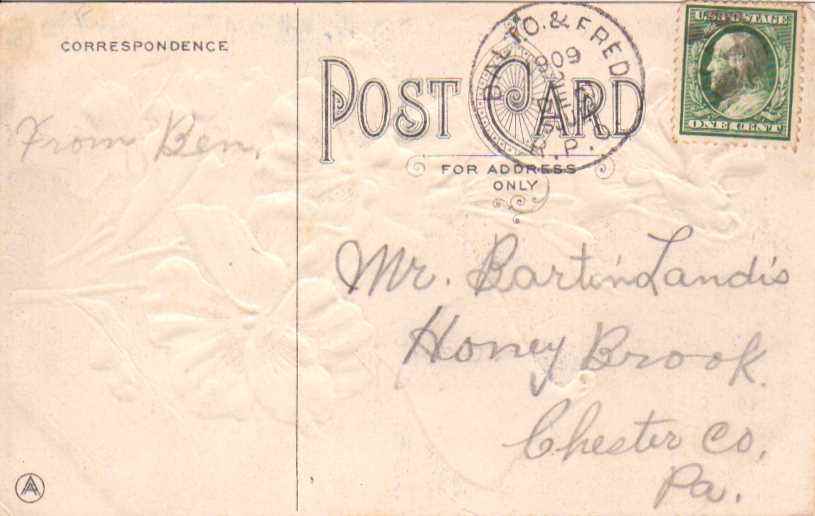 CORRESPONDENCE
From Ben.
POST CARD
FOR ADDRESS
ONLY
BALTO. & FRED
09
R.P.
U.S. POSTAGE
ONE CENT
Mr. Bartin Landis
Honey Brook.
Chester Co,
Pa.